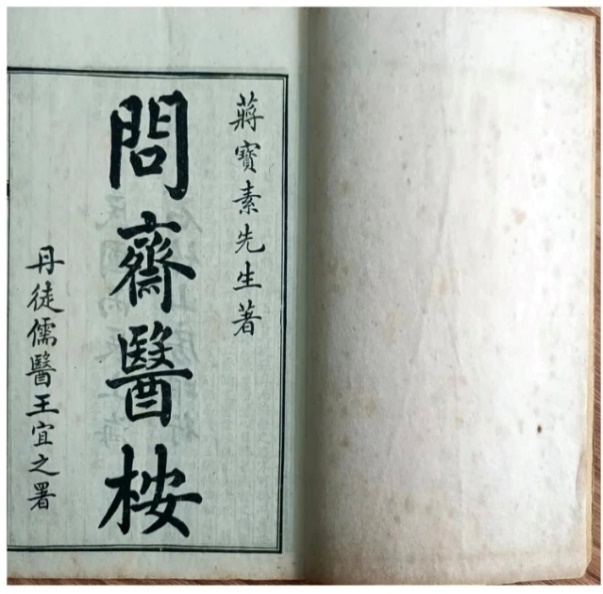 蔣寶素先生著
問齋醫桉
丹徒儒醫王宜之署